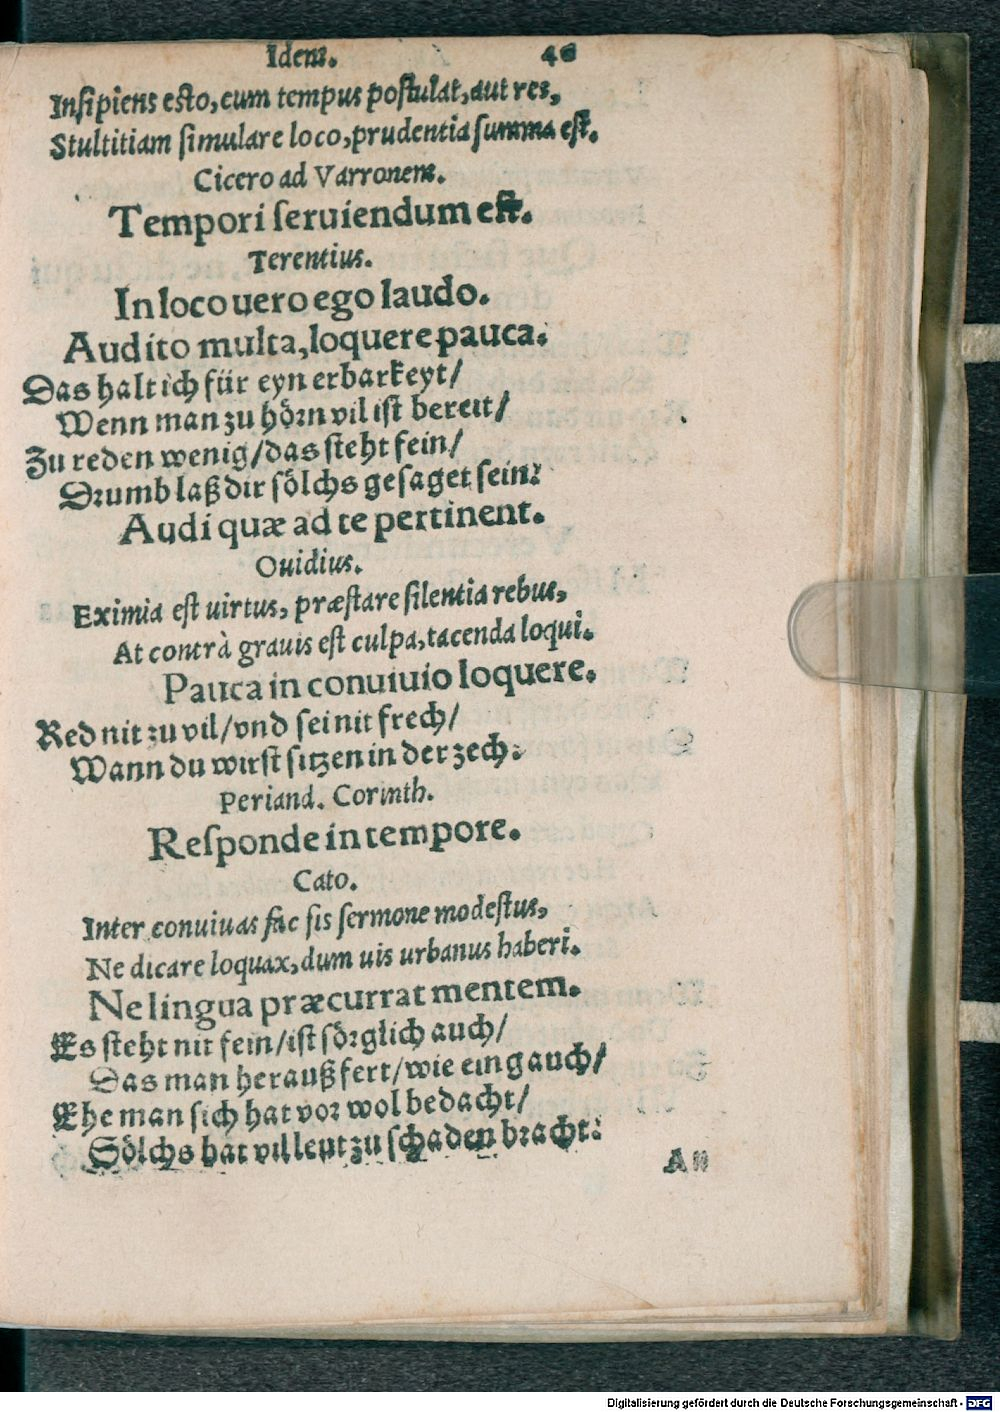 Idem. 46
Insipiens esto, cum tempus postulat, aut res,
Stultitiam simulare loco, prudentia summa est.
Cicero ad Varronem.
Tempori seruiendum est.
Terentius.
In loco uero ego laudo.
Audito multa, loquere pauca.
Das halt ich für eyn erbarkeyt/
Wenn man zu hörn vil ist bereit/
Zu reden wenig/das steht fein/
Drumb laß dir sölchs gesaget sein:
Audi quæ ad te pertinent.
Ouidius.
Eximia est uirtus, præstare silentia rebus,
At contrà grauis est culpa, tacenda loqui.
Pauca in conuiuio loquere.
Red nit zu vil/vnd sei nit frech/
Wann du wirst sitzen in der zech:
Periand. Corinth.
Responde in tempore.
Cato.
Inter conuiuas fac sis sermone modestus,
Ne dicare loquax, dum uis urbanus haberi.
Ne lingua præcurrat mentem.
Es steht nit fein/ist sörglich auch/
Das man herauß fert/wie ein gauch/
Ehe man sich hat vor wol bedacht/
Sölchs hat vil leut zu schaden bracht:
An
Digitalisierung gefördert durch die Deutsche Forschungsgemeinschaft - DFG